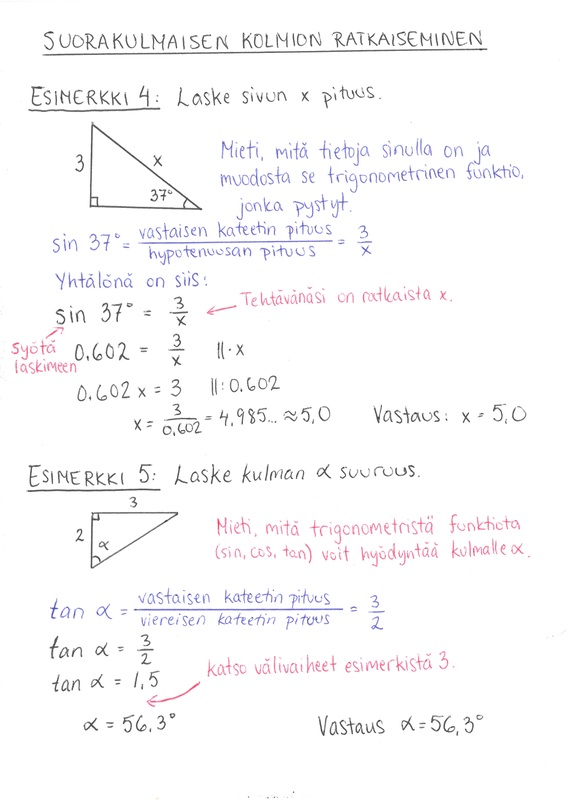 SUORAKULMAISEN KOLMION RATKAISEMINEN
ESIMERKKI 4: Laske sivun x pituus.
3
x
37°
Mieti, mitä tietoja sinulla on ja
muodosta se trigonometrinen funktio,
jonka pystyt.
sin 37° = vastaisen kateetin pituus / hypotenuusan pituus = 3/x
Yhtälönä on siis:
sin 37° = 3/x
Tehtävänäsi on ratkaista x.
Syötä
laskimeen
0,602 = 3/x ||·x
0,602 x = 3 ||:0,602
x = 3/0,602 = 4,985... ≈ 5,0
Vastaus: x = 5,0
ESIMERKKI 5: Laske kulman α suuruus.
3
2
α
Mieti, mitä trigonometristä funktiota
(sin, cos, tan) voit hyödyntää kulmalle α.
tan α = vastaisen kateetin pituus / viereisen kateetin pituus = 3/2
tan α = 3/2
tan α = 1,5
katso välivaiheet esimerkistä 3.
α = 56,3°
Vastaus α = 56,3°